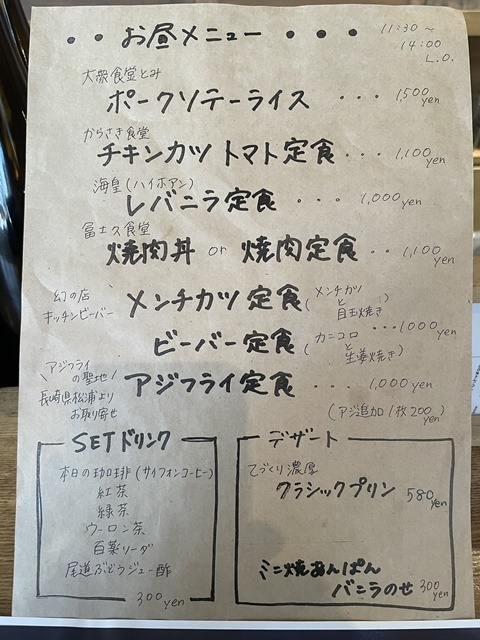 ・・お昼メニュー・・・
11:30～
14:00
L.O.
大衆食堂とみ
ポークソテーライス ・・・ 1,500yen
からさき食堂
チキンカツ トマト定食 ・・・ 1,100yen
海皇(ハイホアン)
レバニラ定食 ・・・ 1,000yen
冨士久食堂
焼肉丼 or 焼肉定食 ・・ 1,100yen
幻の店
キッチンビーバー
メンチカツ定食(メンチカツと目玉焼き)
ビーバー定食(カニコロと生姜焼き) ・・・1000yen
\アジフライの聖地/
長崎県松浦より
お取り寄せ
アジフライ定食 ・・・・ 1,000yen
(アジ追加1枚200yen)
SETドリンク
本日の珈琲(サイフォンコーヒー)
紅茶
緑茶
ウーロン茶
百薬ソーダ
尾道ぶどうジュー酢
300yen
デザート
てづくり濃厚
クラシックプリン 580yen
ミニ焼あんぱん
バニラのせ 300yen